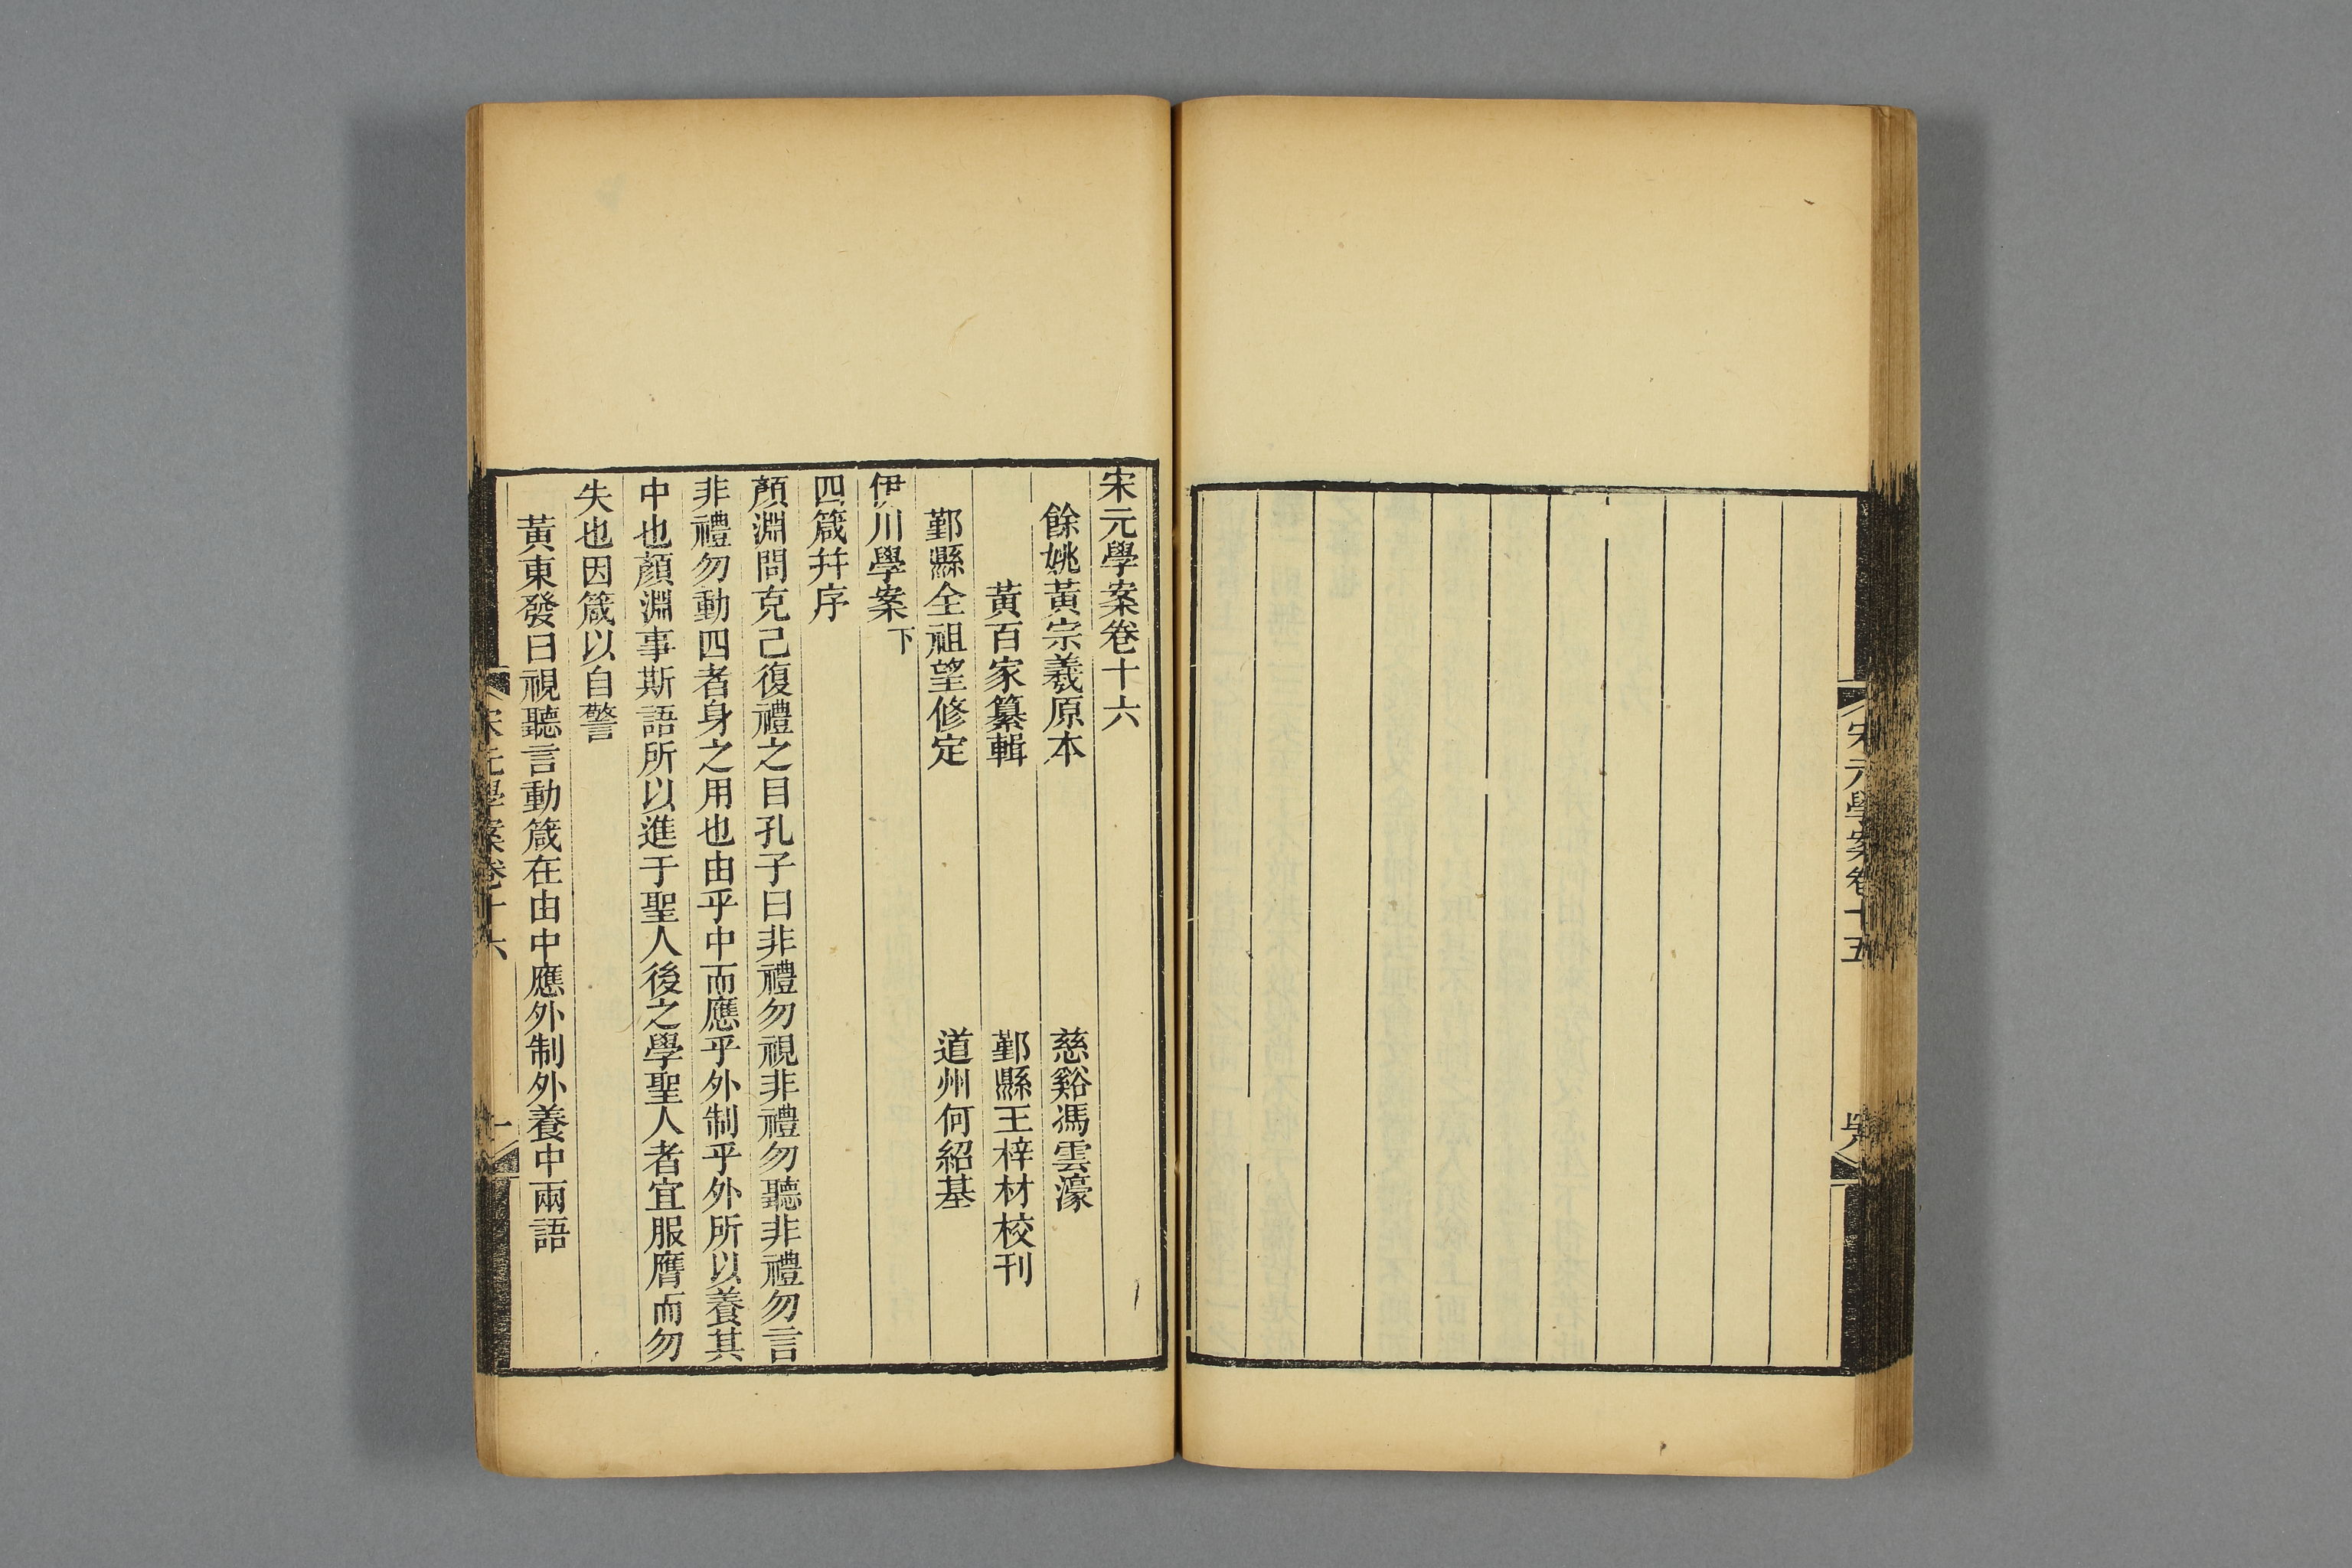 宋元學案卷十五
宋元學案卷十六
餘姚黃宗羲原本
慈谿馮雲濠
黃百家纂輯
鄞縣王梓材校刊
鄞縣全祖望修定
道州何紹基
伊川學案下
四箴幷序
顏淵問克己復禮之目孔子曰非禮勿視非禮勿聽非禮勿言
非禮勿動四者身之用也由乎中而應乎外制乎外所以養其
中也顏淵事斯語所以進于聖人後之學聖人者宜服膺而勿
失也因箴以自警
黃東發曰視聽言動箴在由中應外制外養中兩語
宋元學案卷十六
一